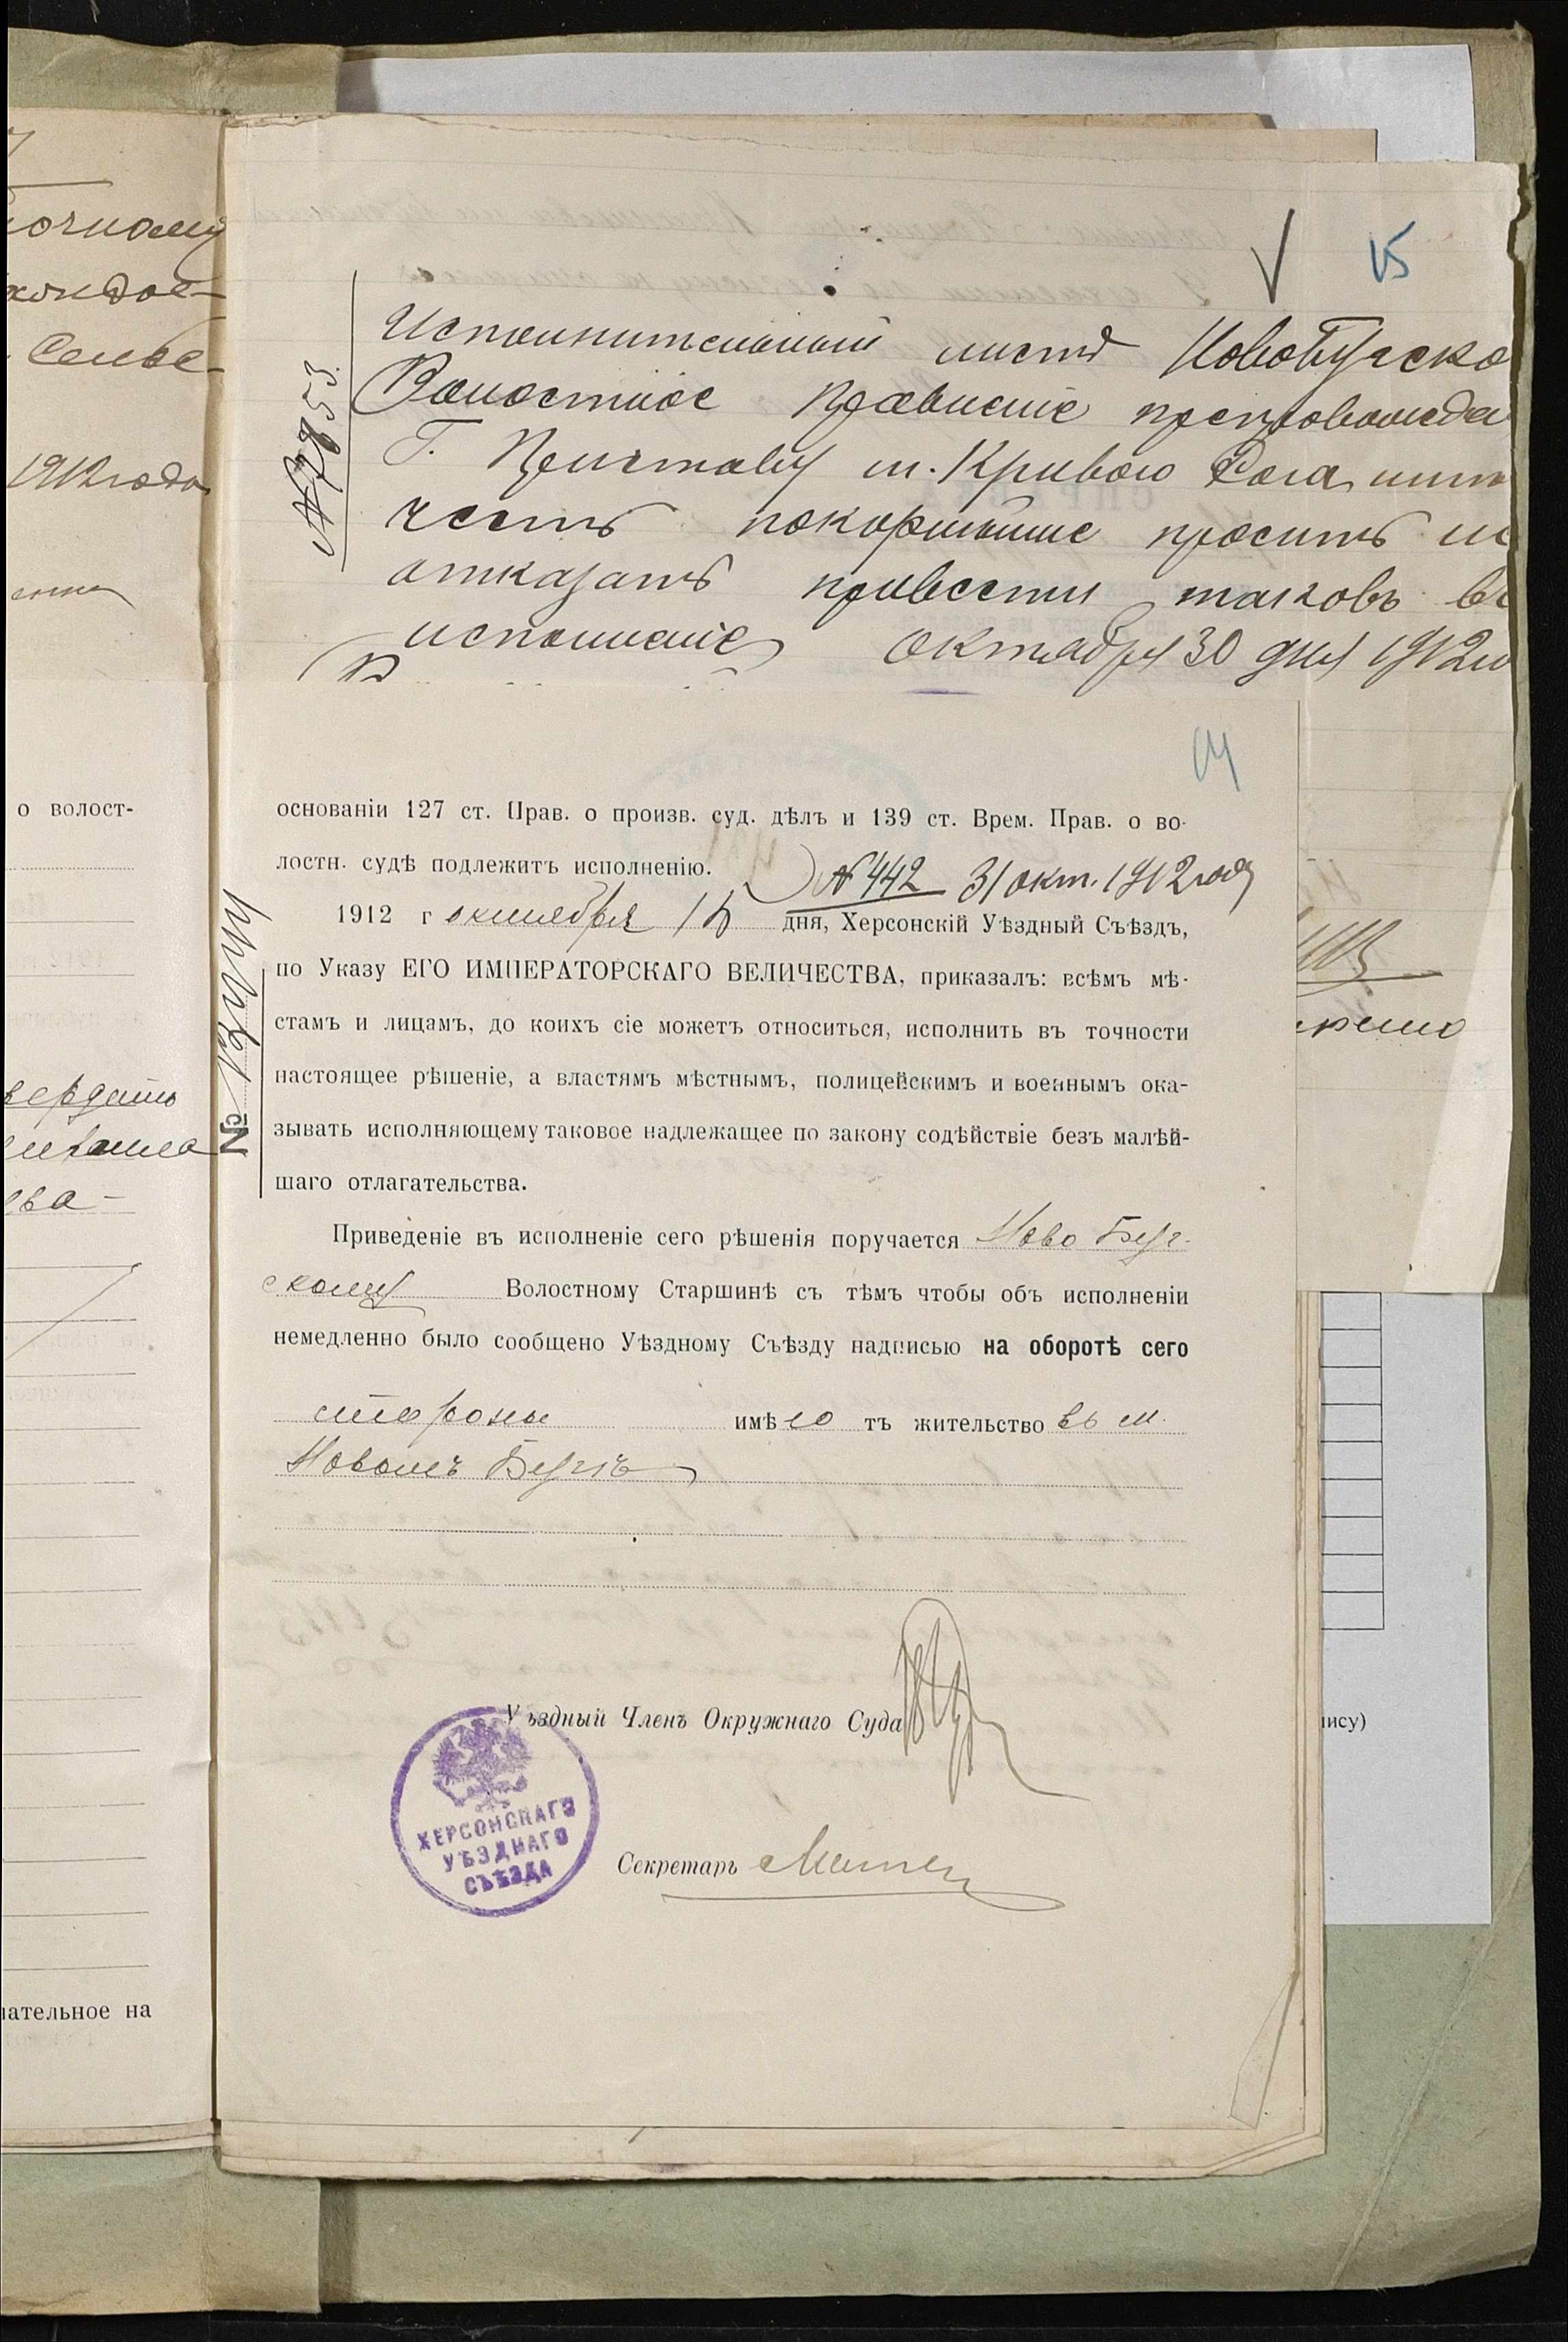 очному
1912 года
о волост-
ева-
лательное на
15
№ 7853.
Исполнительный листъ НовоБугско
Волостное Правленіе препровождая
Г. Приставу м. Кривого Рога имѣ
честь покорнѣйше просить не
отказать привести таковъ въ
исполненіе Октября 30 дня 1912 го
14
основаніи 127 ст. Прав. о произв. суд. дѣлъ и 139 ст. Врем. Прав. о во-
лостн. судѣ подлежитъ исполненію.
№ 442 31 окт. 1912 года
1912 г октября 16 дня, Херсонскій Уѣздный Съѣздъ,
по Указу ЕГО ИМПЕРАТОРСКАГО ВЕЛИЧЕСТВА, приказалъ: всѣмъ мѣ-
стамъ и лицамъ, до коихъ сіе можетъ относиться, исполнить въ точности
настоящее рѣшеніе, а властямъ мѣстнымъ, полицейскимъ и военнымъ ока-
зывать исполняющему таковое надлежащее по закону содѣйствіе безъ малѣй-
шаго отлагательства.
№
Приведеніе въ исполненіе сего рѣшенія поручается Ново Буг-
скому Волостному Старшинѣ съ тѣмъ чтобы объ исполненіи
немедленно было сообщено Уѣздному Съѣзду надписью на оборотѣ сего
стороны имѣютъ жительство въ м.
Новомъ Бугѣ
Уѣздный Членъ Окружнаго Суда
ХЕРСОНСКАГО
УѢЗДНАГО
СЪѢЗДА
Секретарь
ису)